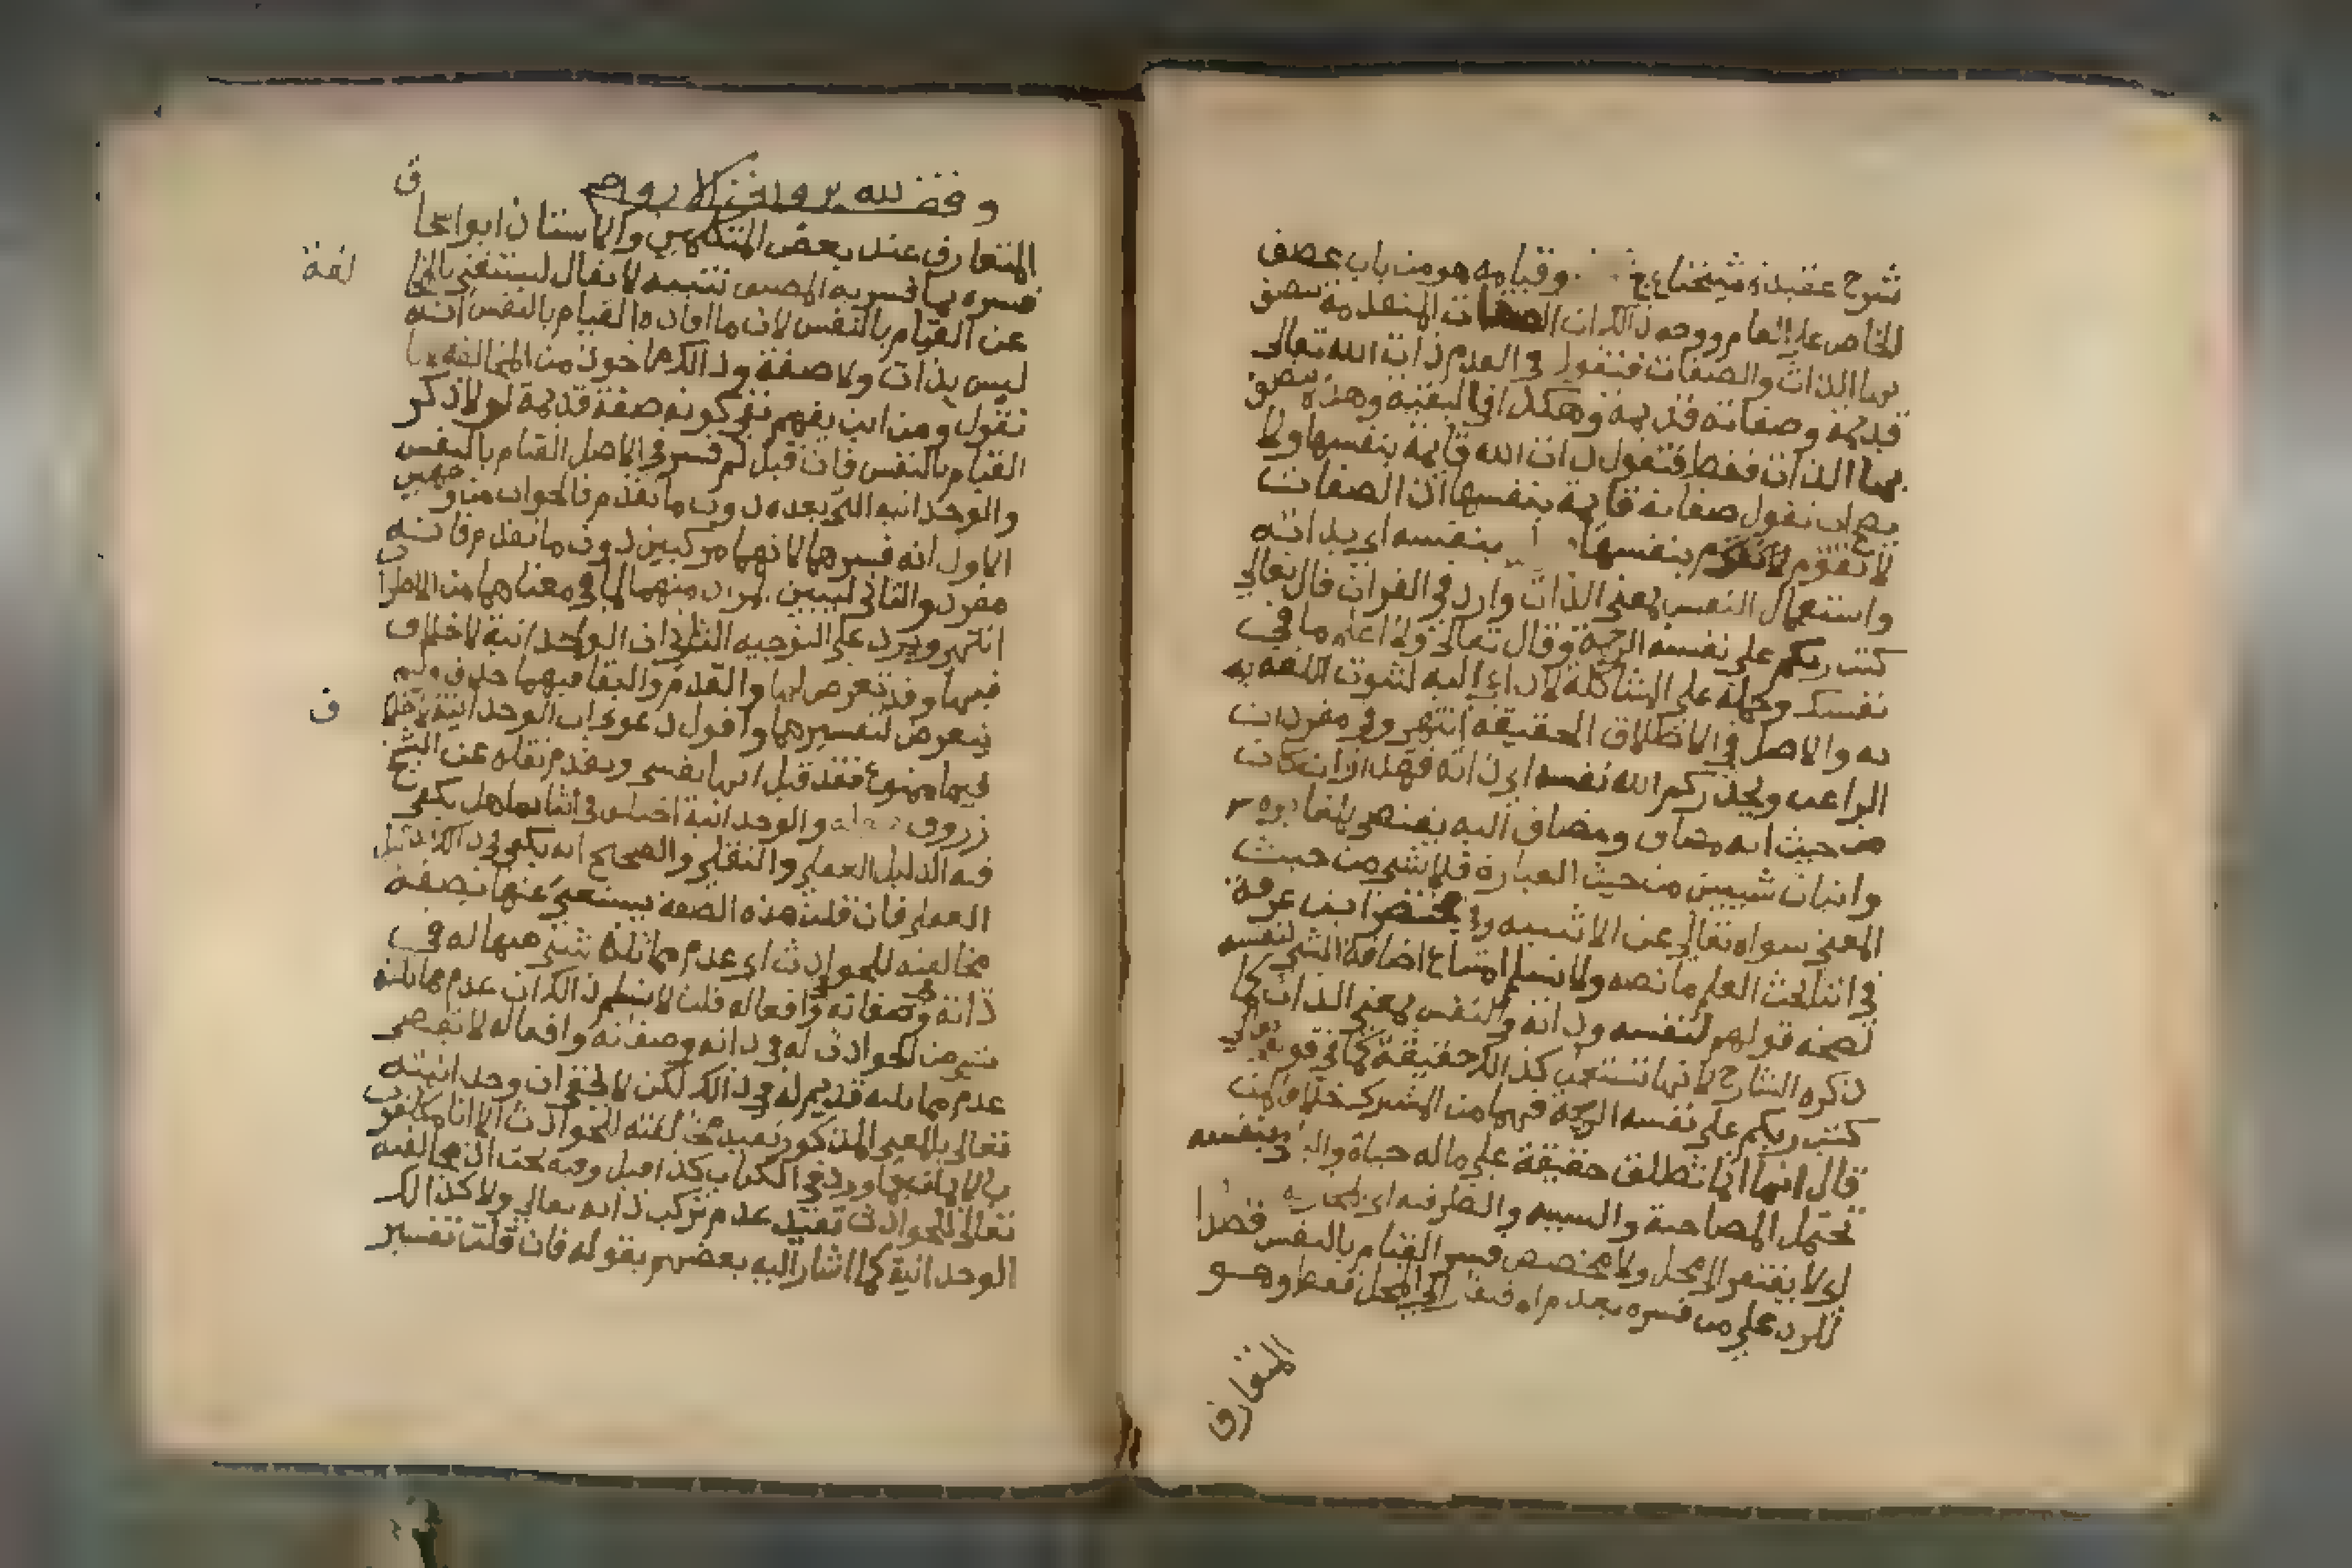 شرح عقيدة شيخنا ع ج وقيامه هو من باب عطف
الخاص على العام ووجه ذالك ان الصفات المتقدمة تتصف
بها الذات والصفات فتقول في القدم ذات الله تعالى
قديمة وصفاته قديمة وهكذا في البقية وهذه تتصف
بها الذات فقط فتقول ذات الله قايمة بنفسها ولا
يصح ان نقول صفاته قايمة بنفسها اذ الصفات
لا تقوم بنفسها بنفسه اي بذاته
واستعمال النفس بمعنى الذات وارد في القران قال تعالى
كتب ربكم على نفسه الرحمة وقال تعالى ولا اعلم ما في
نفسك وحمله على المشاكلة لا داعي اليه لثبوت اللغة به
به والاصل في الاطلاق الحقيقة انتهى وفي مفردات
الراغب ويحذركم الله نفسه اي ذاته فهذا وان كان
من حيث انه مضاف ومضاف اليه يقتضي المغايرة
واثبات شيئين من حيث العبارة فلا شي من حيث
المعنى سواه تعالى عن الاثنينية وفي مختصر ابن عرفة
في اثنا بحث العلم ما نصه ولا نسلم امتناع اضافة الشي لنفسه
لصحة قولهم لنفسه وذاته والنفس بمعنى الذات كما
ذكره الشارح لانها تستعمل كذالك حقيقة كما في قوله تعالى
كتب ربكم على نفسه الرحمة فيهما من المشترك خلافا لمن
قال انها انما تطلق حقيقة على ماله حياة والبا في بنفسه
تحتمل المصاحبة والسببية والظرفية اي المجازية
اي لا يفتقر الى محل ولا مخصص فسر القيام بالنفس قصدا
للرد على من فسره بعدم افتقاره الى المحل فقط وهو
المتعارف
وقف لله برواق الاروام
ق
المتعارف عند بعض المتكلمين والاستاذ ابو اسحا
فسره بما فسر به المصنف تنبيه لا يقال ليستغني بالمخا
لفة
عن القيام بالنفس لان ما افاده القيام بالنفس انه
ليس بذات ولا صفة وذالك ماخوذ من المخالفة
نقول ومن اين يفهم نفي كونه صفة قديمة لولا ذكر
القيام بالنفس فان قيل لم فسر في الاصل القيام بالنفس
والوحدانية التي بعده دون ما تقدم فالجواب من وجهين
الاول انه فسرهما لانهما مركبين دون ما تقدم فانه
مفرد والثاني ليبين المراد منهما لما في معناهما من الاضطرا
ب
انتهى ويرد على التوجيه الثاني ان الوحدانية لا خلاف
فيها وقد تعرض لها والقدم والبقا فيهما خلاف ولم
يتعرض لتفسيرهما واقول دعوى ان الوحدانية لا خلا
ف
فيها ممنوع فقد قيل انها نفسي وتقدم نقله عن الشيخ
زروق والوحدانية اختلف في اثباتها هل يكفي
فيه الدليل العقلي والنقلي والصحيح انه يكفي في ذالك الدليل
العقلي فان قلت هذه الصفة يستغنى عنها بصفة
مخالفته للحوادث اي عدم مماثلة شي منها له في
ذاته وصفاته وافعاله قلت لا نسلم ذالك ان عدم مماثلة
شي من الحوادث له في ذاته وصفاته وافعاله لا تقتضي
عدم مماثلة قديم له في ذالك لكن لا يخفى ان وحدانيته
تعالى بالمعنى المذكور تفيد مخالفته للحوادث الا انا مكلفون
بالايمان بما ورد في الكتاب كذا قيل وفيه بحث ان مخالفته
تعالى للحوادث تفيد عدم تركب ذاته تعالى ولا كذالك
الوحدانية كما اشار اليه بعضهم بقوله فان قلت تفسير